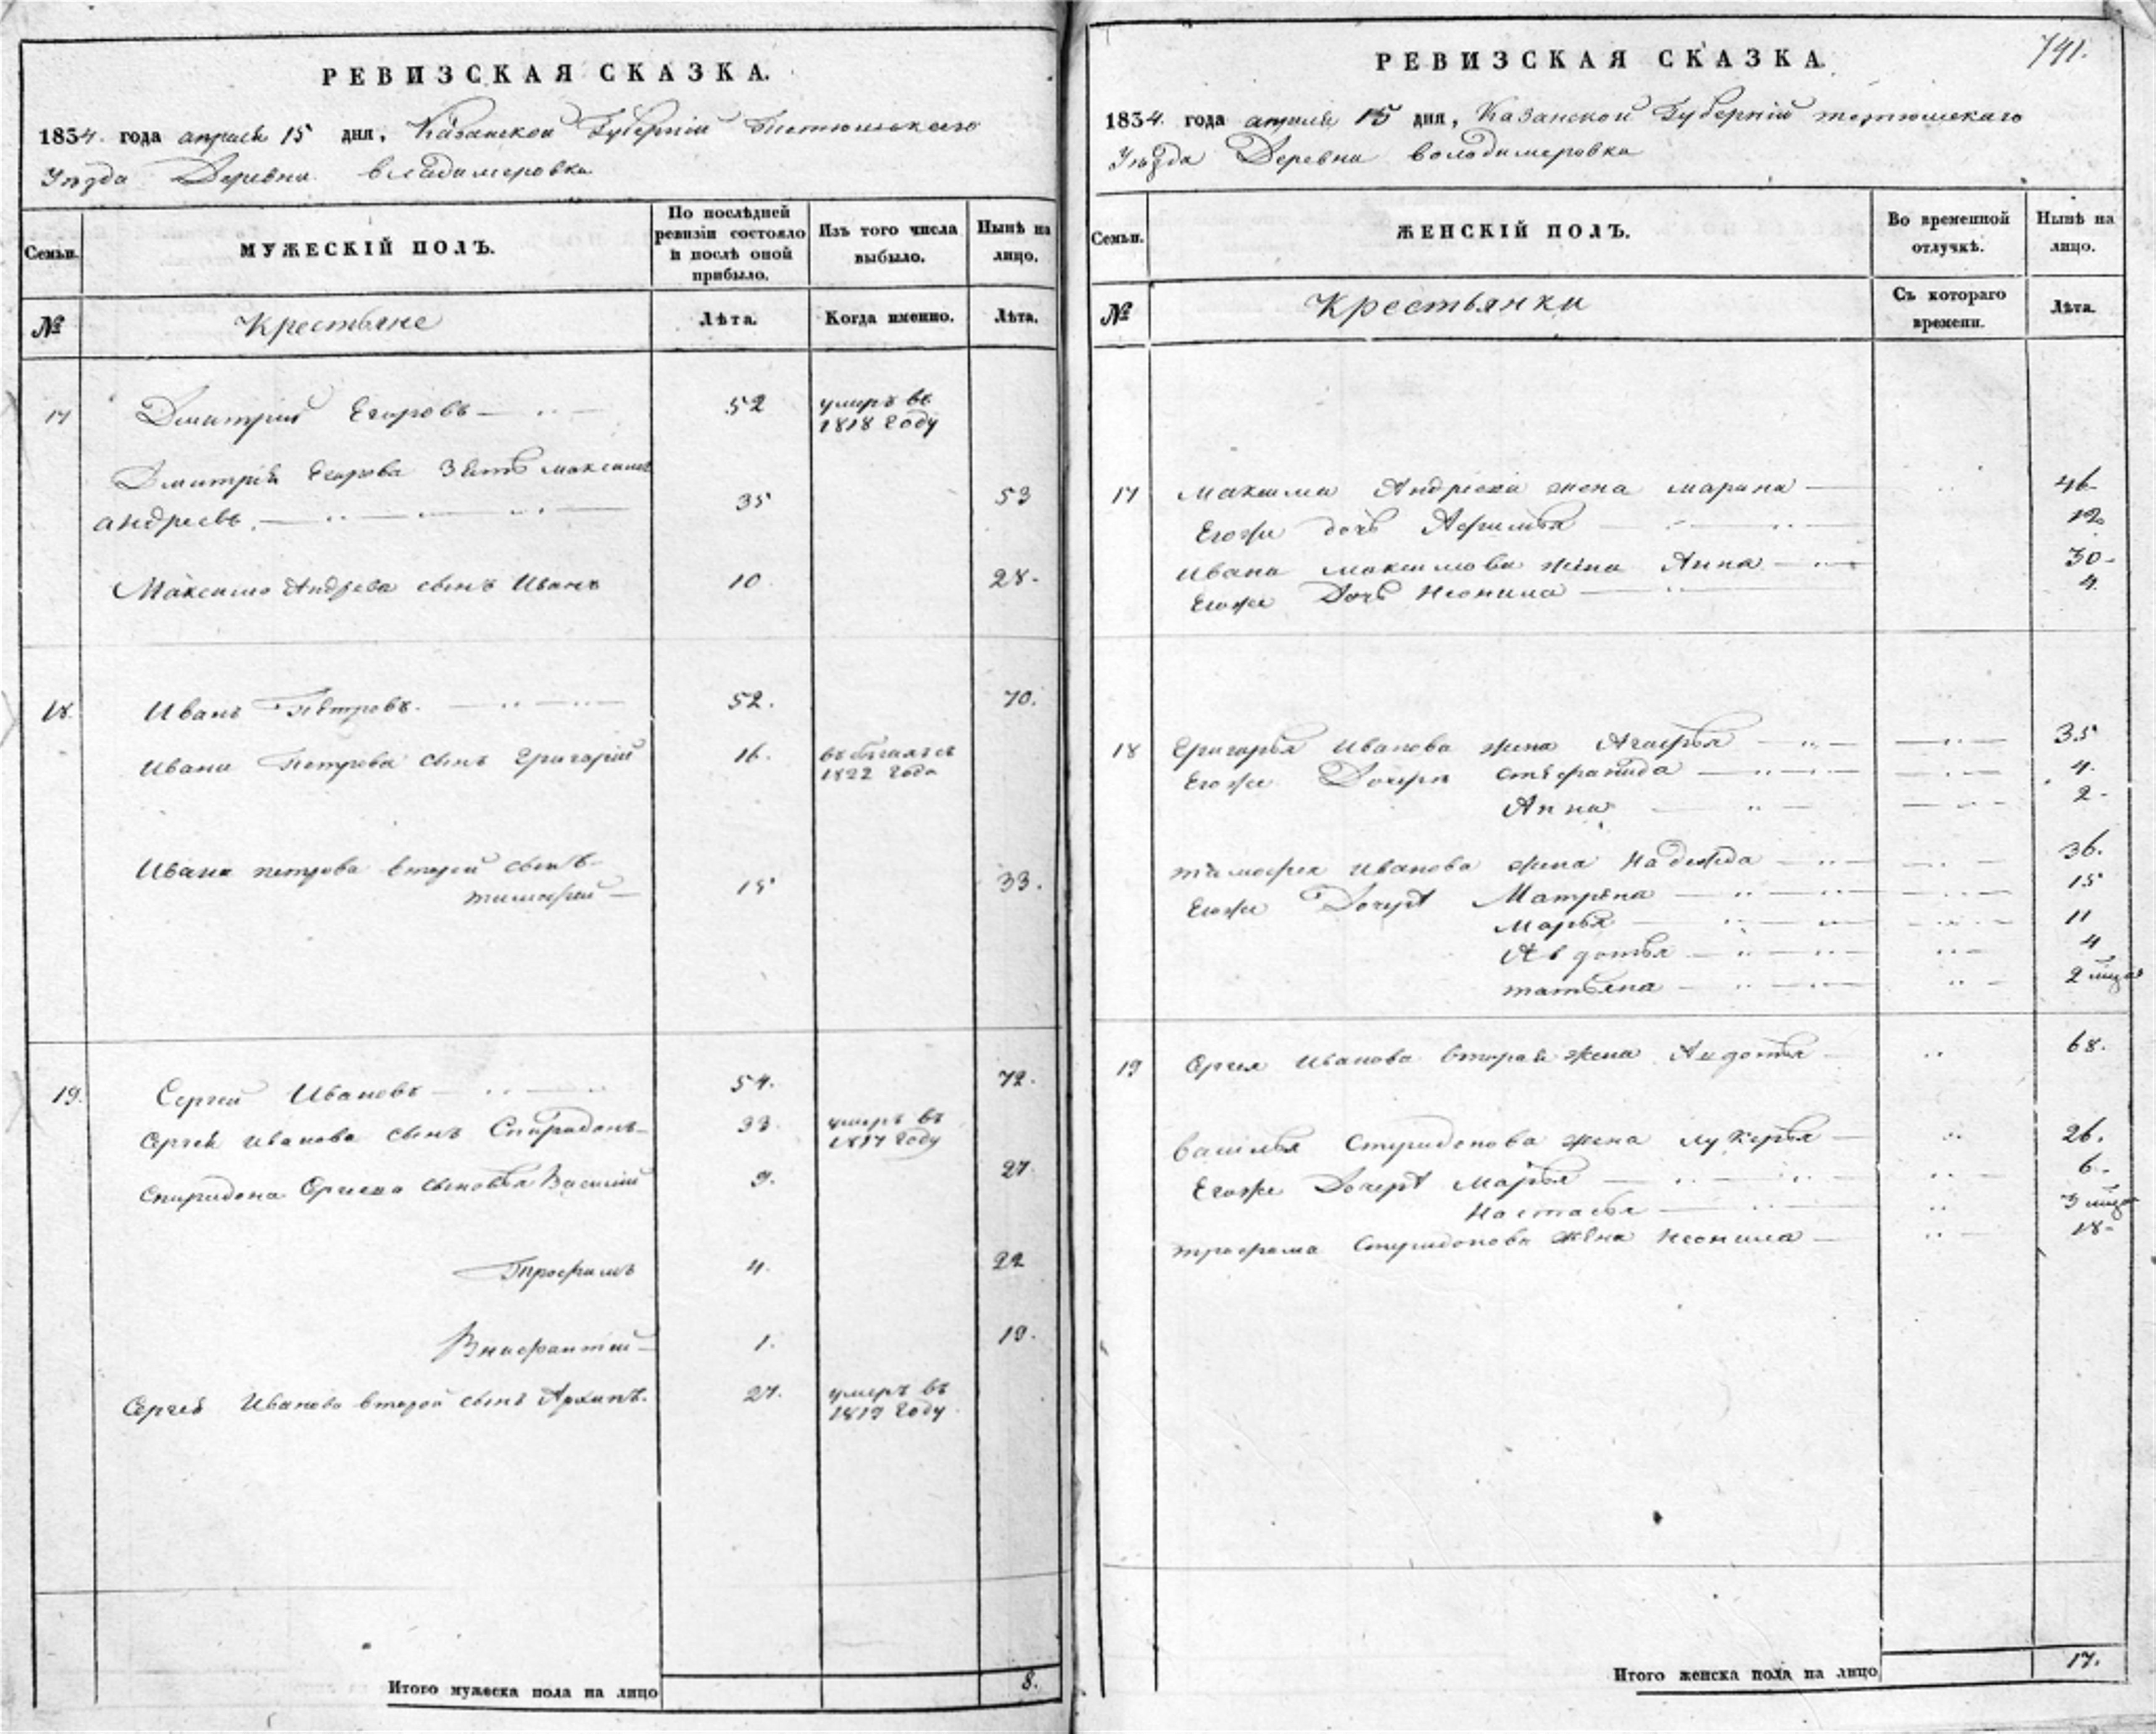 РЕВИЗСКАЯ СКАЗКА.
1834. года апреля 15 дня, Казанской Губернии Тетюшского
Уезда Деревни Владимеровки
Семьи.
МУЖЕСКІЙ ПОЛЪ.
По послѣдней ревизіи состояло и послѣ оной прибыло.
Изъ того числа выбыло.
Нынѣ на лицо.
№
Крестьяне
Лѣта.
Когда именно.
Лѣта.
17 Дмитрий Егоровъ 52 умеръ въ
1818 году
Дмитрия Егорова Зять максимъ
андреевъ. 35 53
Максима Андреева сынъ Иванъ 10 28.
18 Иванъ Петровъ. 52. 70.
Ивана Петрова сынъ Григорий 16. въ бегахъ съ
1822 года
Ивана петрова второй сынъ
тимофей 15 33.
19. Сергей Ивановъ 54. 72.
Сергея Иванова сынъ Спиридонъ 33. умеръ въ
1817 году
Спиридона Сергеева сыновья Василий 9. 27
Трофимъ 4. 22
Внифантий 1. 19.
Сергея Иванова второй сынъ Архипъ. 27. умеръ въ
1819 году
Итого мужеска пола на лицо 8.
741.
РЕВИЗСКАЯ СКАЗКА.
1834. года апреля 15 дня, Казанской Губерний тетюшскаго
Уезда Деревни володимеровки
Семьи.
ЖЕНСКІЙ ПОЛЪ.
Во временной отлучкѣ.
Нынѣ на лицо.
№
Крестьянки
Съ котораго времени.
Лѣта.
17 Максима Андреева жена марина 46
Егоже дочь Афимья 12
Ивана максимова жена Анна 30
Егоже Дочь Неонила 4.
18 Григорья Иванова жена Агафья 35
Егоже Дочери стефанида 4.
Анна 2
тимофея Иванова жена Надежда 36.
Егоже Дочери Матрена 15
Марья 11
Авдотья 4
татьяна 2
19 Сергея Иванова вторая жена Авдотья 68.
Василья Спиридонова жена лукерья 26.
Егоже Дочери Марья 6.
Настасья 3
трофима Спиридонова жена неонила 18
Итого женска пола на лицо 17.